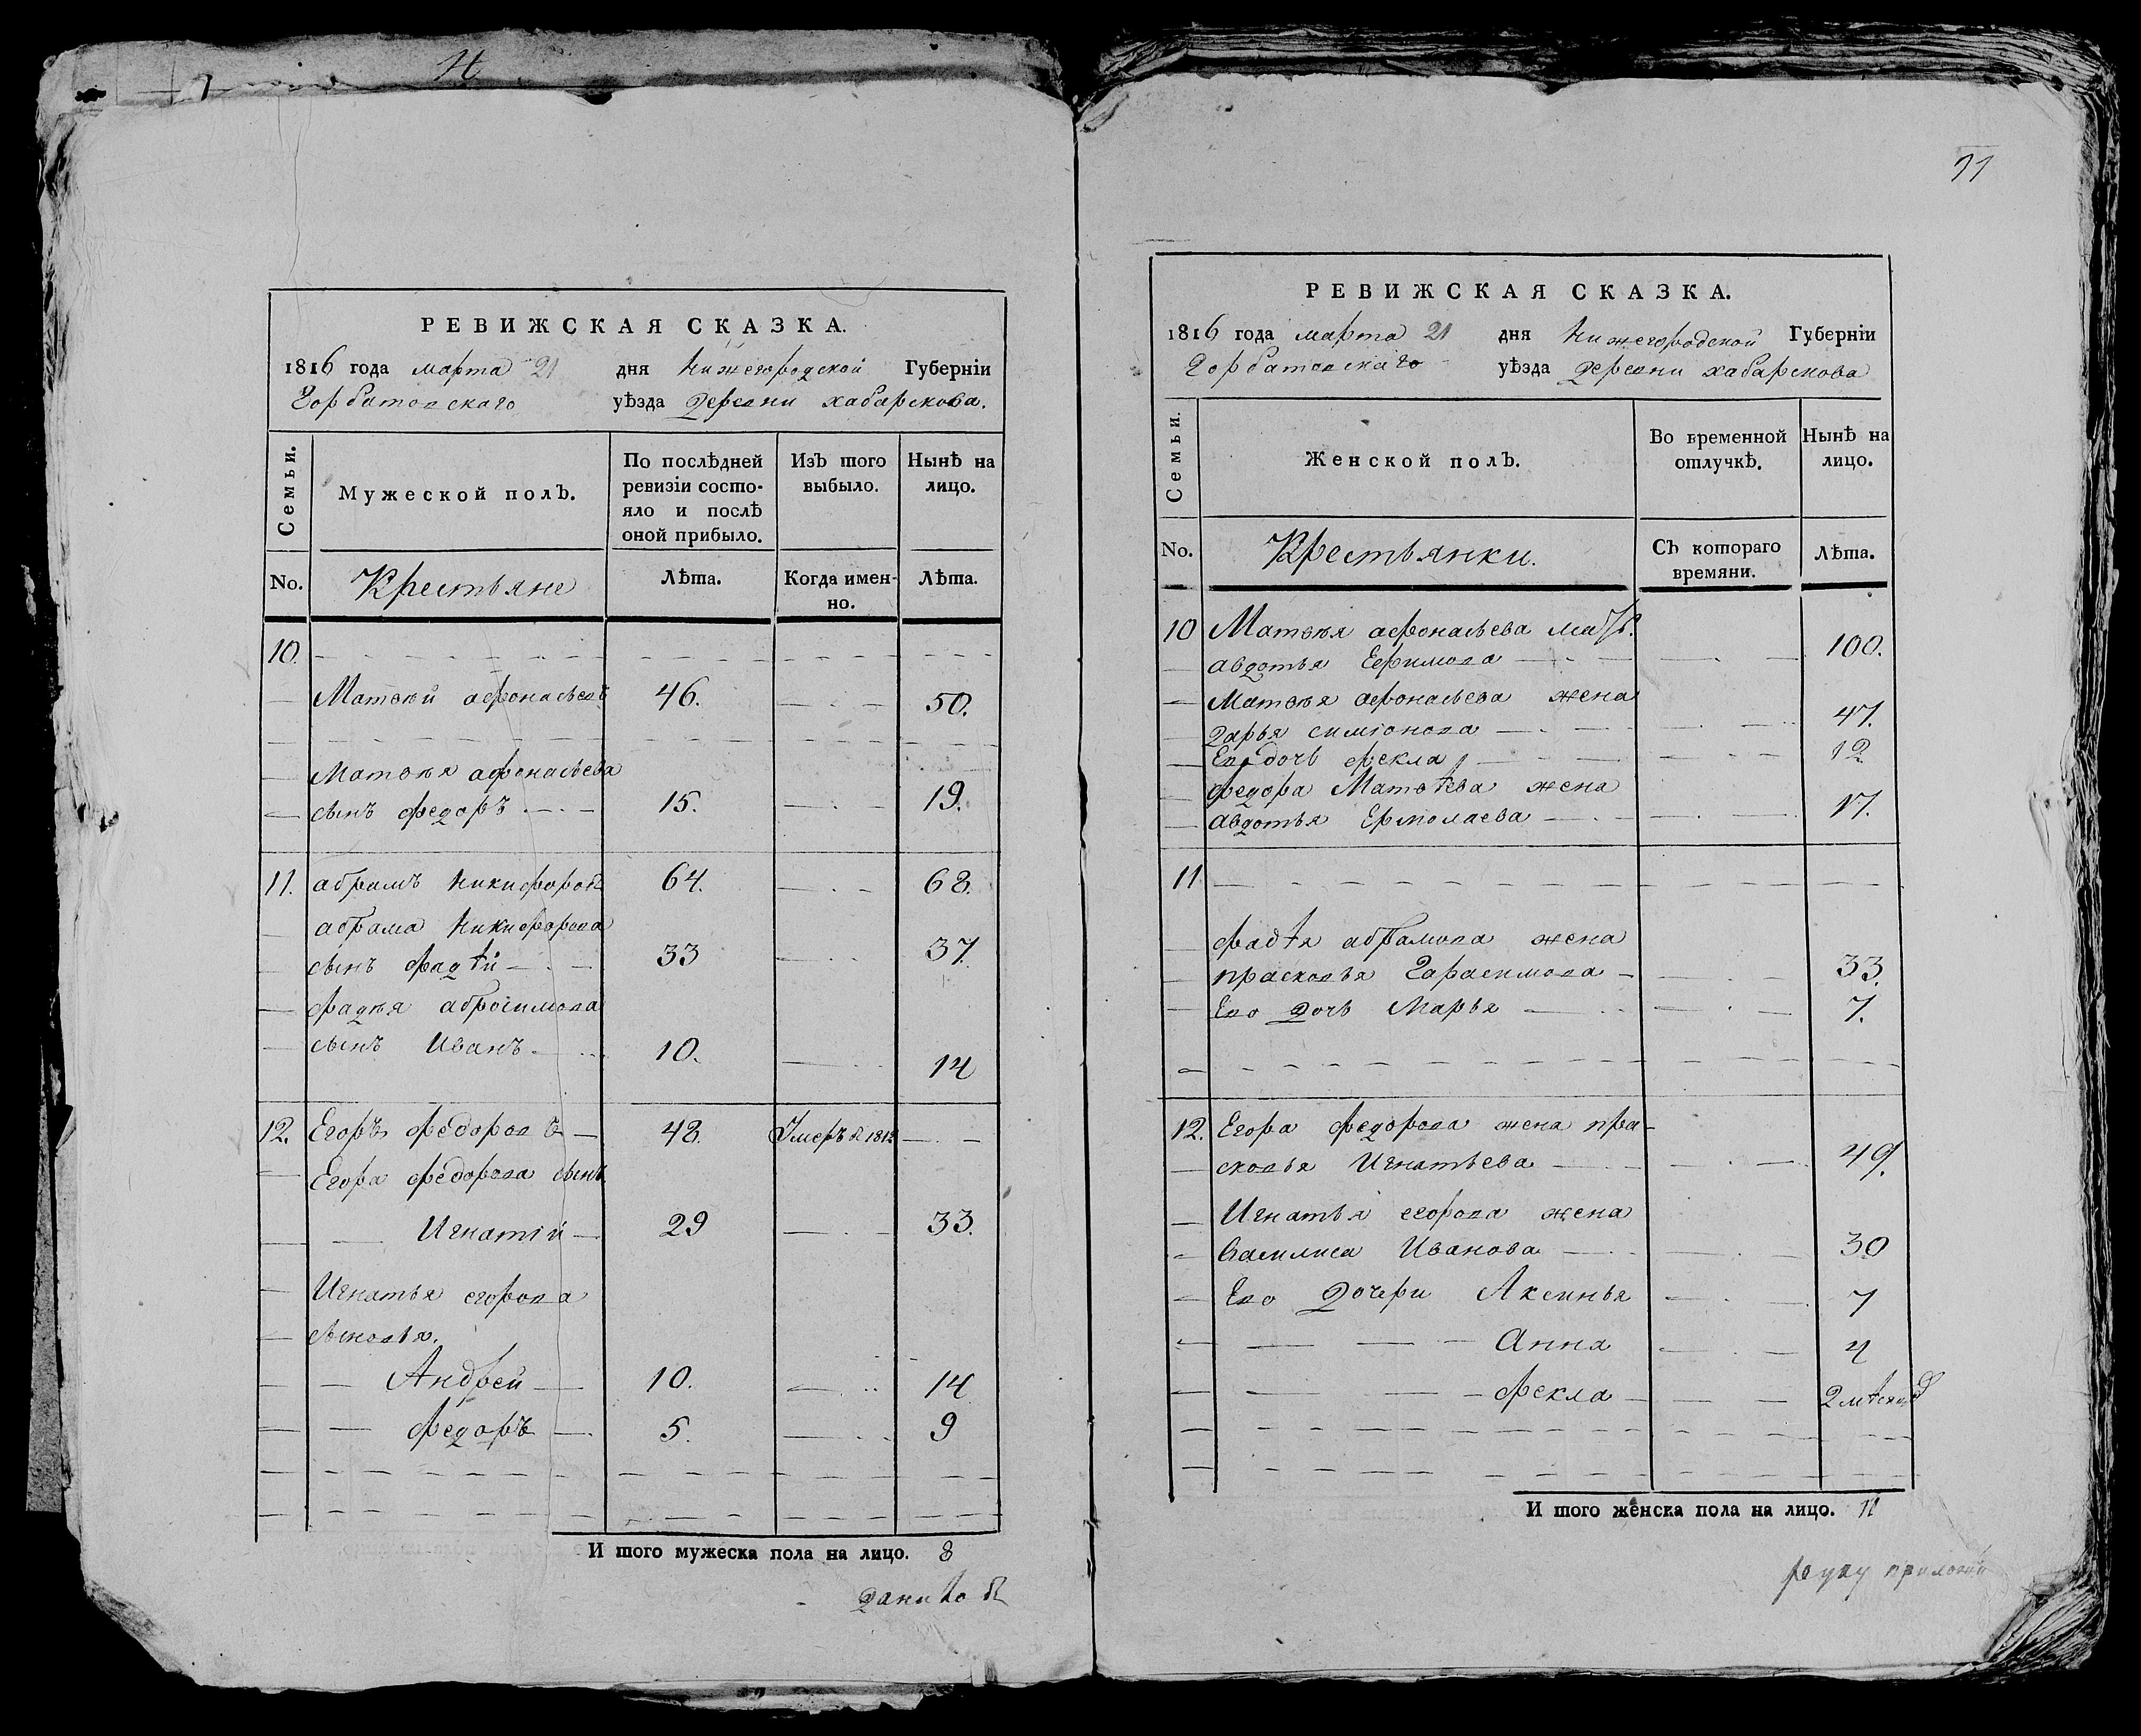 РЕВИЖСКАЯ СКАЗКА.
1816 года марта 21 дня Нижегородской Губерніи
Горбатовскаго уѣзда деревни хабарскова.
Семьи. Мужеской полъ. По послѣдней ревизіи состояло и послѣ оной прибыло. Изъ того выбыло. Нынѣ на лицо.
No. Крестьяне Лѣта. Когда именно. Лѣта.
10.
Матвѣй афонасьевъ 46. 50.
Матвѣя афонасьева
сынъ федоръ 15. 19.
11. абрамъ Никифоровъ 64. 68.
абрама Никифорова
сынъ фадѣй 33 37.
фадѣя абросимова
сынъ Иванъ 10. 14
12. Егоръ федоровъ 48. Умеръ в 1812
Егора федорова сынъ
Игнатій 29 33.
Игнатья егорова
сыновья.
Андрей 10. 14
федоръ 5. 9
И того мужеска пола на лицо. 8
11
РЕВИЖСКАЯ СКАЗКА.
1816 года марта 21 дня Нижегородской Губерніи
Горбатовскаго уѣзда деревни хабарскова
Семьи. Женской полъ. Во временной отлучкѣ. Нынѣ на лицо.
No. Крестьянки. Съ котораго времяни. Лѣта.
10 Матвѣя афонасьева мать.
авдотья Ефимова 100.
Матвѣя афонасьева жена
дарья симіонова 47.
Ево дочь фекла 12
федора Матвѣева жена
авдотья Ермолаева 17.
11
фадѣя абрамова жена
прасковья Гарасимова 33.
Ево дочь Марья 7.
12. Егора федорова жена пра-
сковья Игнатьева 49.
Игнатья егорова жена
василиса Иванова 30
Ево дочери Аксинья 7
анна 4
фекла
И того женска пола на лицо. 11
руку приложилъ